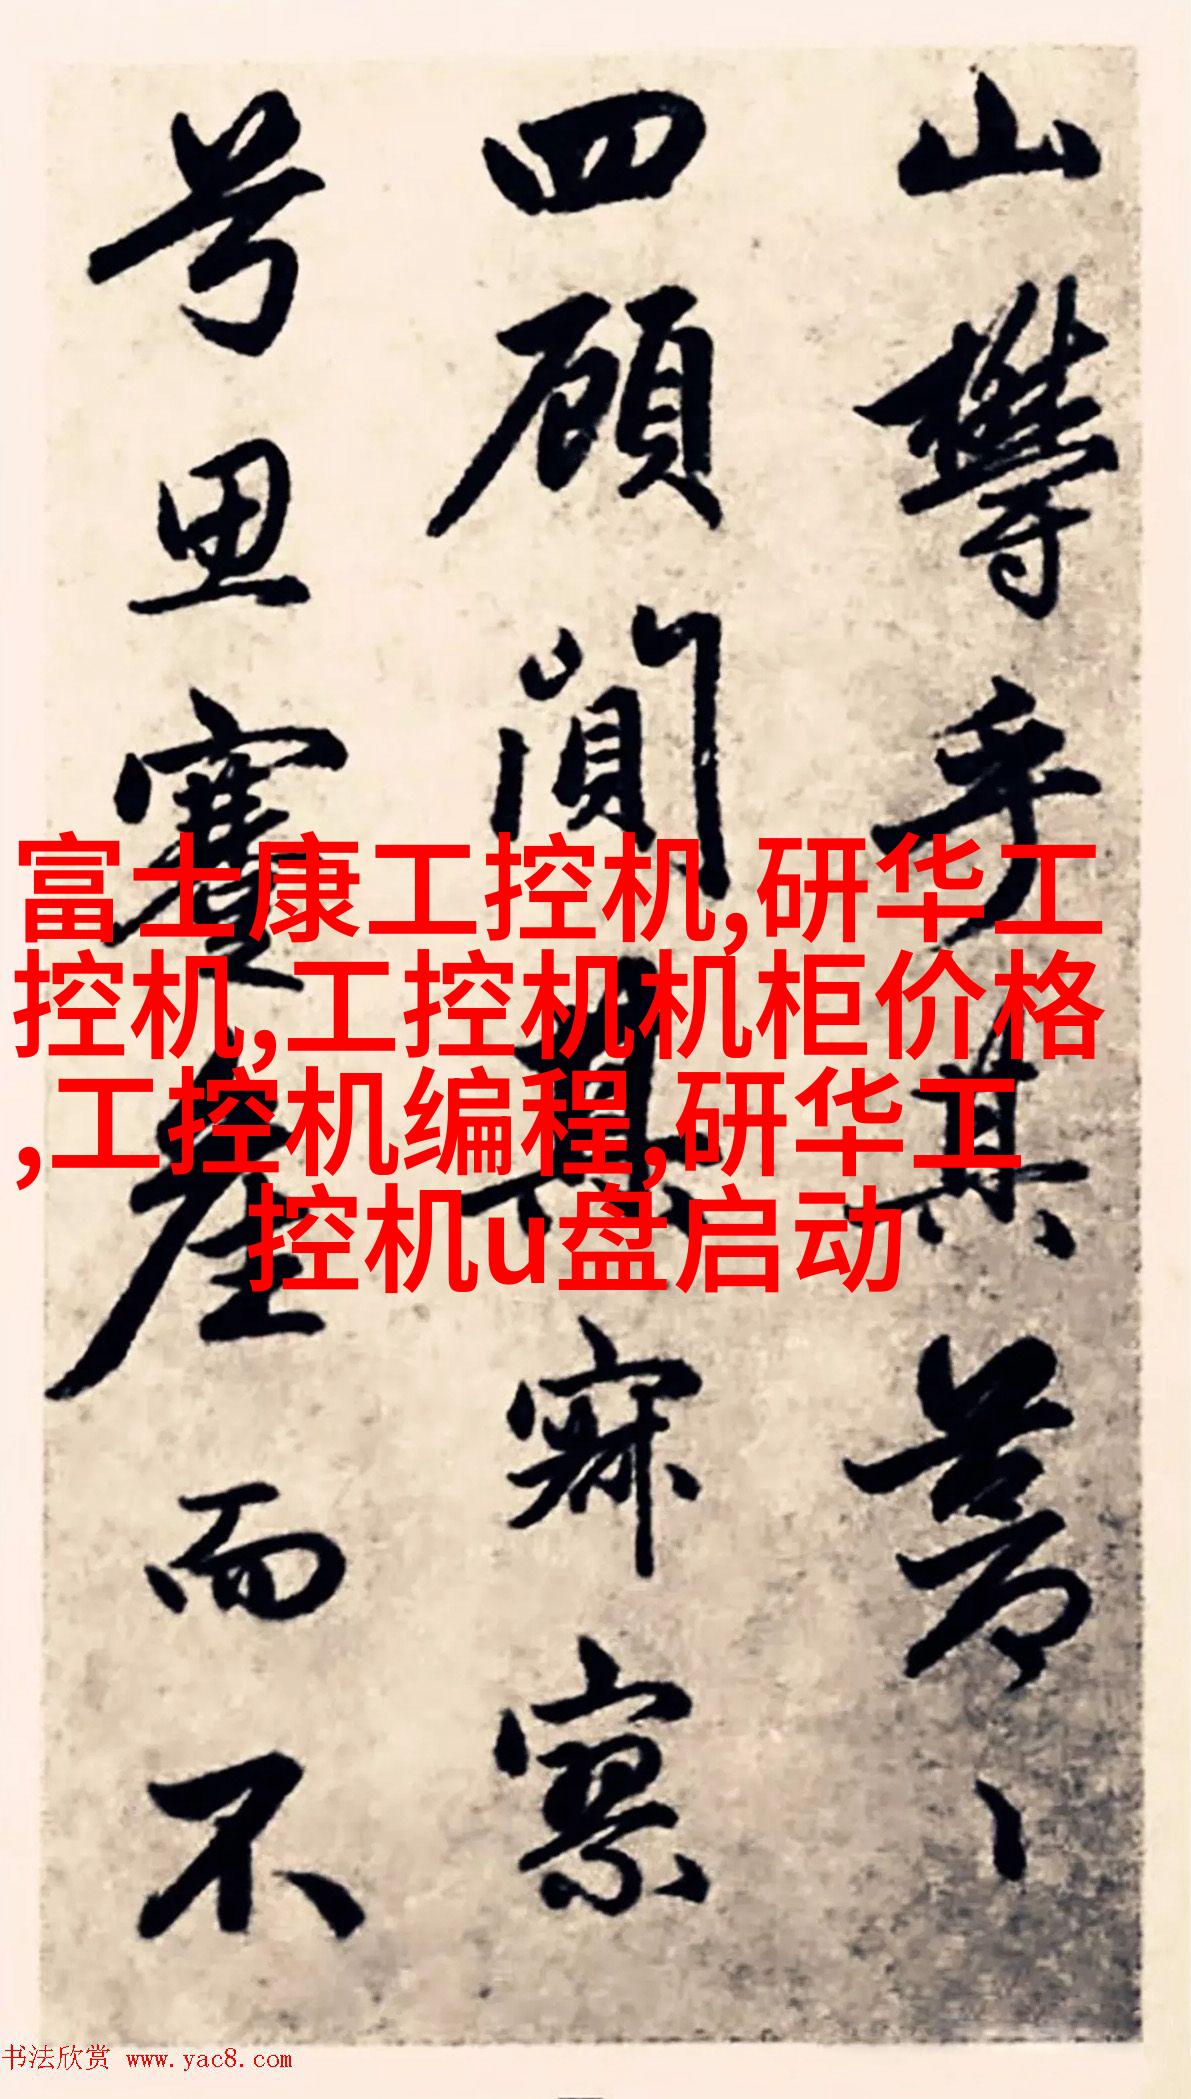 山欝乎其蒼〻
四顧闃其寂寥
兮思蹇產而不
富士康工控机,研华工
控机,工控机机柜价格
,工控机编程,研华工
控机u盘启动
书法欣赏 www.yac8.com